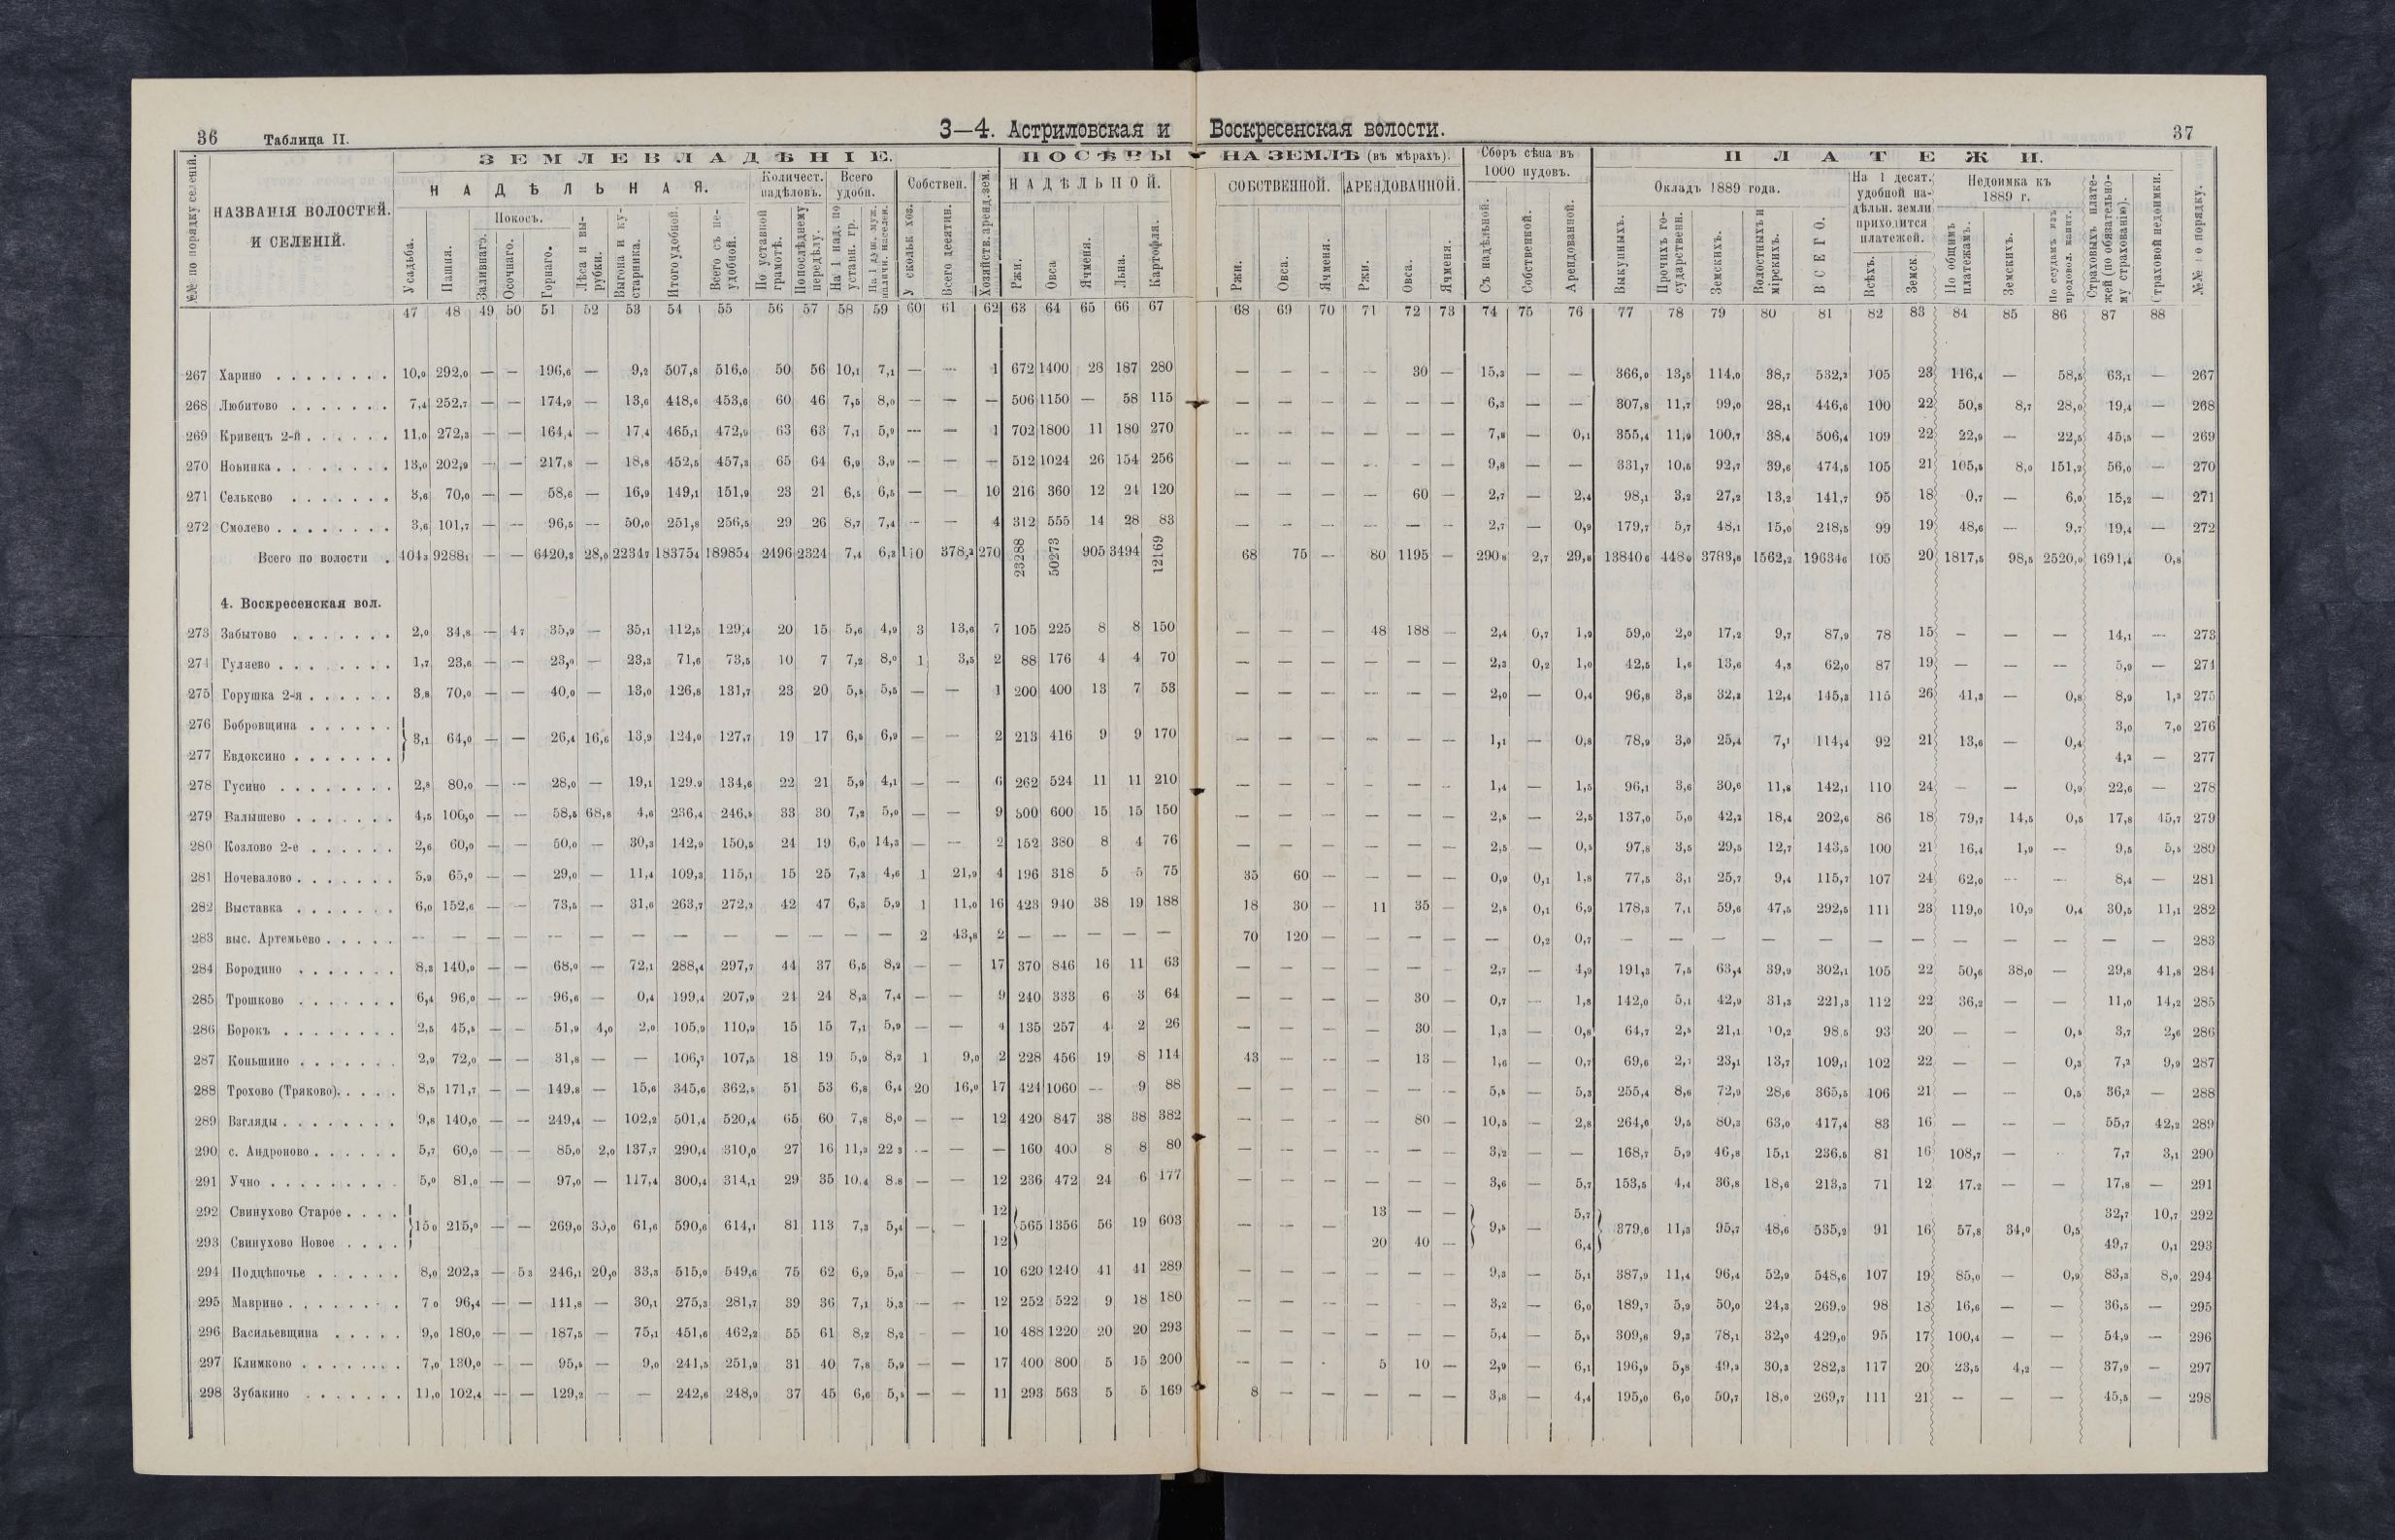 36 Таблица II. 3—4. Астриловская и Воскресенская волости. 37
№№ по порядку селеній.
НАЗВАНІЯ ВОЛОСТЕЙ И СЕЛЕНІЙ.
ЗЕМЛЕВЛАДѢНІЕ.
НАДѢЛЬНАЯ.
Усадьба. Пашня. Покосъ. Заливнаго. Осочнаго. Горнаго. Лѣса и вырубки. Выгона и кустарника. Итого удобной. Всего съ неудобной.
Количест. надѣловъ. По уставной грамотѣ. По послѣднему передѣлу.
Всего удобн. На 1 над. по уставн. гр. На 1 душ. муж. наличн. населен.
Собствен. У скольк хоз. Всего десятин. Хозяйств. аренд. зем.
ПОСѢВЫ НА ЗЕМЛѢ (въ мѣрахъ).
НАДѢЛЬНОЙ. Ржи. Овса Ячменя. Льна. Картофля.
СОБСТВЕННОЙ. Ржи. Овса. Ячменя.
АРЕНДОВАННОЙ. Ржи. Овса. Ячменя.
Сборъ сѣна въ 1000 пудовъ. Съ надѣльной. Собственной. Арендованной.
ПЛАТЕЖИ.
Окладъ 1889 года. Выкупныхъ. Прочихъ государственн. Земскихъ. Волостныхъ и мірскихъ. ВСЕГО.
На 1 десят. удобной надѣльн. земли приходится платежей. Всѣхъ. Земск.
Недоимка къ 1889 г. По общимъ платежамъ. Земскихъ. По ссудамъ изъ продовол. капит.
Страховыхъ платежей (по обязательному страхованію). Страховой недоимки. №№ по порядку.
47 48 49 50 51 52 53 54 55 56 57 58 59 60 61 62 63 64 65 66 67 68 69 70 71 72 73 74 75 76 77 78 79 80 81 82 83 84 85 86 87 88
267 Харино 10,0 292,0 — — 196,6 — 9,2 507,8 516,0 50 56 10,1 7,1 — — 1 672 1400 28 187 280 — — — — 30 — 15,3 — — 366,0 13,5 114,0 38,7 532,2 105 23 116,4 — 58,5 63,1 — 267
268 Любитово 7,4 252,7 — — 174,9 — 13,6 448,6 453,6 60 46 7,5 8,0 — — — 506 1150 — 58 115 — — — — — — 6,3 — — 307,8 11,7 99,0 28,1 446,6 100 22 50,8 8,7 28,0 19,4 — 268
269 Кривецъ 2-й 11,0 272,3 — — 164,4 — 17,4 465,1 472,9 63 63 7,1 5,9 — — 1 702 1800 11 180 270 — — — — — — 7,8 — 0,1 355,4 11,9 100,7 38,4 506,4 109 22 22,9 — 22,5 45,5 — 269
270 Новинка 13,0 202,9 — — 217,8 — 18,8 452,5 457,3 65 64 6,9 3,9 — — — 512 1024 26 154 256 — — — — — — 9,8 — — 331,7 10,5 92,7 39,6 474,5 105 21 105,5 8,0 151,2 56,0 — 270
271 Сельково 3,6 70,0 — — 58,6 — 16,9 149,1 151,9 23 21 6,5 6,5 — — 10 216 360 12 24 120 — — — — 60 — 2,7 — 2,4 98,1 3,2 27,2 13,2 141,7 95 18 0,7 — 6,0 15,2 — 271
272 Смолево 3,6 101,7 — — 96,5 — 50,0 251,8 256,5 29 26 8,7 7,4 — — 4 312 555 14 28 83 — — — — — — 2,7 — 0,9 179,7 5,7 48,1 15,0 248,5 99 19 48,6 — 9,7 19,4 — 272
Всего по волости 404,3 9288,1 — — 6420,3 28,0 2234,7 18375,4 18985,4 2496 2324 7,4 6,3 110 378,2 270 23288 50273 905 3494 12169 68 75 — 80 1195 — 290,8 2,7 29,8 13840,6 448,0 3783,8 1562,2 19634,6 105 20 1817,5 98,5 2520,0 1691,4 0,8
4. Воскресенская вол.
273 Забытово 2,0 34,8 — 4,7 35,9 — 35,1 112,5 129,4 20 15 5,6 4,9 3 13,6 7 105 225 8 8 150 — — — 48 188 — 2,4 0,7 1,9 59,0 2,0 17,2 9,7 87,9 78 15 — — — 14,1 — 273
274 Гуляево 1,7 23,6 — — 23,0 — 23,3 71,6 73,5 10 7 7,2 8,0 1 3,5 2 88 176 4 4 70 — — — — — — 2,3 0,2 1,0 42,5 1,6 13,6 4,3 62,0 87 19 — — — 5,9 — 274
275 Горушка 2-я 3,8 70,0 — — 40,0 — 13,0 126,8 131,7 23 20 5,5 5,5 — — 1 200 400 13 7 53 — — — — — — 2,0 — 0,4 96,8 3,8 32,3 12,4 145,3 115 26 41,3 — 0,8 8,9 1,3 275
276 Бобровщина 3,0 7,0 276
3,1 64,0 — — 26,4 16,6 13,9 124,0 127,7 19 17 6,5 6,9 — — 2 213 416 9 9 170 — — — — — — 1,1 — 0,8 78,9 3,0 25,4 7,1 114,4 92 21 13,6 — 0,4
277 Евдоксино 4,2 — 277
278 Гусино 2,8 80,0 — — 28,0 — 19,1 129,9 134,6 22 21 5,9 4,1 — — 6 262 524 11 11 210 — — — — — — 1,4 — 1,5 96,1 3,6 30,6 11,8 142,1 110 24 — — 0,9 22,6 — 278
279 Валышево 4,5 100,0 — — 58,5 68,8 4,6 236,4 246,5 33 30 7,2 5,0 — — 9 300 600 15 15 150 — — — — — — 2,5 — 2,5 137,0 5,0 42,2 18,4 202,6 86 18 79,7 14,5 0,5 17,8 45,7 279
280 Козлово 2-е 2,6 60,0 — — 50,0 — 30,3 142,9 150,5 24 19 6,0 14,3 — — 2 152 380 8 4 76 — — — — — — 2,5 — 0,5 97,8 3,5 29,5 12,7 143,5 100 21 16,4 1,9 — 9,5 5,5 280
281 Ночевалово 3,9 65,0 — — 29,0 — 11,4 109,3 115,1 15 25 7,3 4,6 1 21,9 4 196 318 5 5 75 35 60 — — — — 0,9 0,1 1,8 77,5 3,1 25,7 9,4 115,7 107 24 62,0 — — 8,4 — 281
282 Выставка 6,0 152,6 — — 73,5 — 31,6 263,7 272,2 42 47 6,3 5,9 1 11,0 16 423 940 38 19 188 18 30 — 11 35 — 2,5 0,1 6,9 178,3 7,1 59,6 47,5 292,5 111 23 119,0 10,9 0,4 30,5 11,1 282
283 выс. Артемьево — — — — — — — — — — — — — 2 43,8 2 — — — — — 70 120 — — — — — 0,2 0,7 — — — — — — — — — — — — 283
284 Бородино 8,3 140,0 — — 68,0 — 72,1 288,4 297,7 44 37 6,5 8,2 — — 17 370 846 16 11 63 — — — — — — 2,7 — 4,9 191,3 7,5 63,4 39,9 302,1 105 22 50,6 38,0 — 29,8 41,8 284
285 Трошково 6,4 96,0 — — 96,6 — 0,4 199,4 207,9 24 24 8,3 7,4 — — 9 240 333 6 3 64 — — — — 30 — 0,7 — 1,8 142,0 5,1 42,9 31,3 221,3 112 22 36,2 — — 11,0 14,2 285
286 Борокъ 2,5 45,5 — — 51,9 4,0 2,0 105,9 110,9 15 15 7,1 5,9 — — 4 135 257 4 2 26 — — — — 30 — 1,3 — 0,8 64,7 2,5 21,1 10,2 98,5 93 20 — — 0,5 3,7 2,6 286
287 Коньшино 2,9 72,0 — — 31,8 — — 106,7 107,5 18 19 5,9 8,2 1 9,0 2 228 456 19 8 114 43 — — — 13 — 1,6 — 0,7 69,6 2,7 23,1 13,7 109,1 102 22 — — 0,3 7,2 9,9 287
288 Трохово (Тряково). 8,5 171,7 — — 149,8 — 15,6 345,6 362,5 51 53 6,8 6,4 20 16,0 17 424 1060 — 9 88 — — — — — — 5,5 — 5,3 255,4 8,6 72,9 28,6 365,5 106 21 — — 0,5 36,2 — 288
289 Взгляды 9,8 140,0 — — 249,4 — 102,2 501,4 520,4 65 60 7,8 8,0 — — 12 420 847 38 38 382 — — — — 80 — 10,5 — 2,8 264,6 9,5 80,3 63,0 417,4 83 16 — — — 55,7 42,2 289
290 с. Андроново 5,7 60,0 — — 85,0 2,0 137,7 290,4 310,0 27 16 11,3 22,3 — — — 160 400 8 8 80 — — — — — — 3,2 — — 168,7 5,9 46,8 15,1 236,5 81 16 108,7 — 7,7 3,1 290
291 Учно 5,0 81,0 — — 97,0 — 117,4 300,4 314,1 29 35 10,4 8,8 — — 12 236 472 24 6 177 — — — — — — 3,6 — 5,7 153,5 4,4 36,8 18,6 213,3 71 12 17,2 — — 17,8 — 291
292 Свинухово Старое 12 13 — — 5,7 32,7 10,7 292
15,0 215,0 — — 269,0 30,0 61,6 590,6 614,1 81 113 7,3 5,4 — — 565 1356 56 19 603 — — — 9,5 — 379,6 11,3 95,7 48,6 535,2 91 16 57,8 34,0 0,5
293 Свинухово Новое 12 20 40 — 6,4 49,7 0,1 293
294 Подцѣпочье 8,0 202,3 — 5,3 246,1 20,0 33,3 515,0 549,6 75 62 6,9 5,6 — — 10 620 1240 41 41 289 — — — — — — 9,3 — 5,1 387,9 11,4 96,4 52,9 548,6 107 19 85,0 — 0,9 83,3 8,0 294
295 Маврино 7,0 96,4 — — 141,8 — 30,1 275,3 281,7 39 36 7,1 5,3 — — 12 252 522 9 18 180 — — — — — — 3,2 — 6,0 189,7 5,9 50,0 24,3 269,9 98 18 16,6 — — 36,5 — 295
296 Васильевщина 9,0 180,0 — — 187,5 — 75,1 451,6 462,2 55 61 8,2 8,2 — — 10 488 1220 20 20 293 — — — — — — 5,4 — 5,4 309,6 9,3 78,1 32,0 429,0 95 17 100,4 — — 54,9 — 296
297 Климково 7,0 130,0 — — 95,5 — 9,0 241,5 251,9 31 40 7,8 5,9 — — 17 400 800 5 15 200 — — — 5 10 — 2,9 — 6,1 196,9 5,8 49,3 30,3 282,3 117 20 23,5 4,2 — 37,9 — 297
298 Зубакино 11,0 102,4 — — 129,2 — — 242,6 248,9 37 45 6,6 5,5 — — 11 293 563 5 5 169 8 — — — — — 3,8 — 4,4 195,0 6,0 50,7 18,0 269,7 111 21 — — — 45,5 — 298